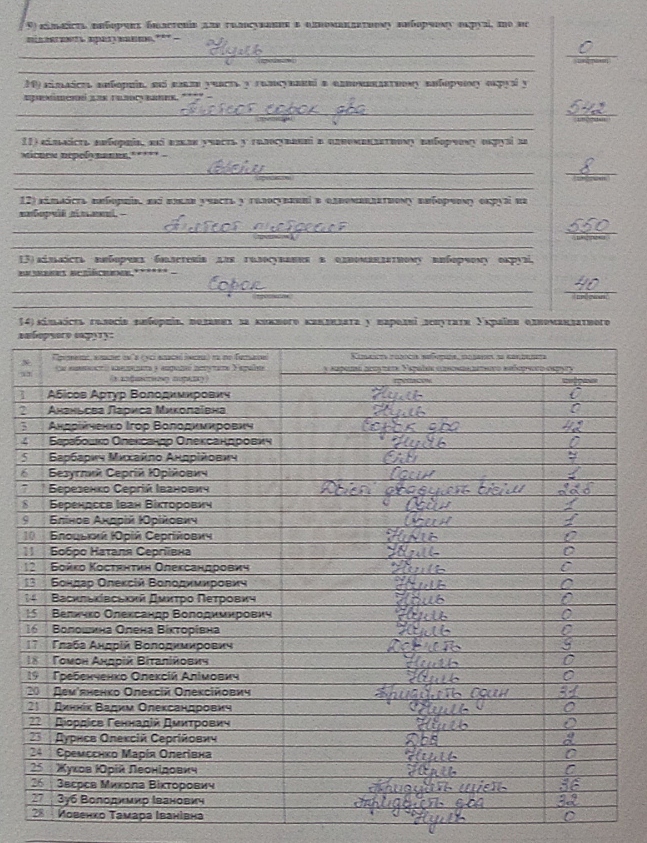 9) кількість виборчих бюлетенів для голосування в одномандатному виборчому окрузі, що не
підлягають врахуванню,*** –
Нуль 0
(прописом) (цифрами)
10) кількість виборців, які взяли участь у голосуванні в одномандатному виборчому окрузі у
приміщенні для голосування, **** –
П'ятсот сорок два 542
(прописом) (цифрами)
11) кількість виборців, які взяли участь у голосуванні в одномандатному виборчому окрузі за
місцем перебування,***** –
Вісім 8
(прописом) (цифрами)
12) кількість виборців, які взяли участь у голосуванні в одномандатному виборчому окрузі на
виборчій дільниці, –
П'ятсот п'ятдесят 550
(прописом) (цифрами)
13) кількість виборчих бюлетенів для голосування в одномандатному виборчому окрузі,
визнаних недійсними,****** –
Сорок 40
(прописом) (цифрами)
14) кількість голосів виборців, поданих за кожного кандидата у народні депутати України одномандатного
виборчого округу:
№ Прізвище, власне ім'я (усі власні імена) та по батькові Кількість голосів виборців, поданих за кандидата
з/п (за наявності) кандидата у народні депутати України у народні депутати України одномандатного виборчого округу
(в алфавітному порядку) прописом цифрами
1 Абісов Артур Володимирович Нуль 0
2 Ананьєва Лариса Миколаївна Нуль 0
3 Андрійченко Ігор Володимирович Сорок два 42
4 Барабошко Олександр Олександрович Нуль 0
5 Барбарич Михайло Андрійович Сім 7
6 Безуглий Сергій Юрійович Один 1
7 Березенко Сергій Іванович Двісті двадцять вісім 228
8 Берендєєв Іван Вікторович Один 1
9 Блінов Андрій Юрійович Один 1
10 Блоцький Юрій Сергійович Нуль 0
11 Бобро Наталя Сергіївна Нуль 0
12 Бойко Костянтин Олександрович Нуль 0
13 Бондар Олексій Володимирович Нуль 0
14 Васильківський Дмитро Петрович Нуль 0
15 Величко Олександр Володимирович Нуль 0
16 Волошина Олена Вікторівна Нуль 0
17 Глаба Андрій Володимирович Дев'ять 9
18 Гомон Андрій Віталійович Нуль 0
19 Гребенченко Олексій Алімович Нуль 0
20 Дем'яненко Олексій Олексійович Тридцять один 31
21 Динник Вадим Олександрович Нуль 0
22 Діордієв Геннадій Дмитрович Нуль 0
23 Дурнєв Олексій Сергійович Два 2
24 Єремєєнко Марія Олегівна Нуль 0
25 Жуков Юрій Леонідович Нуль 0
26 Звєрєв Микола Вікторович Тридцять шість 36
27 Зуб Володимир Іванович два 32
28 Йовенко Тамара Іванівна Нуль 0